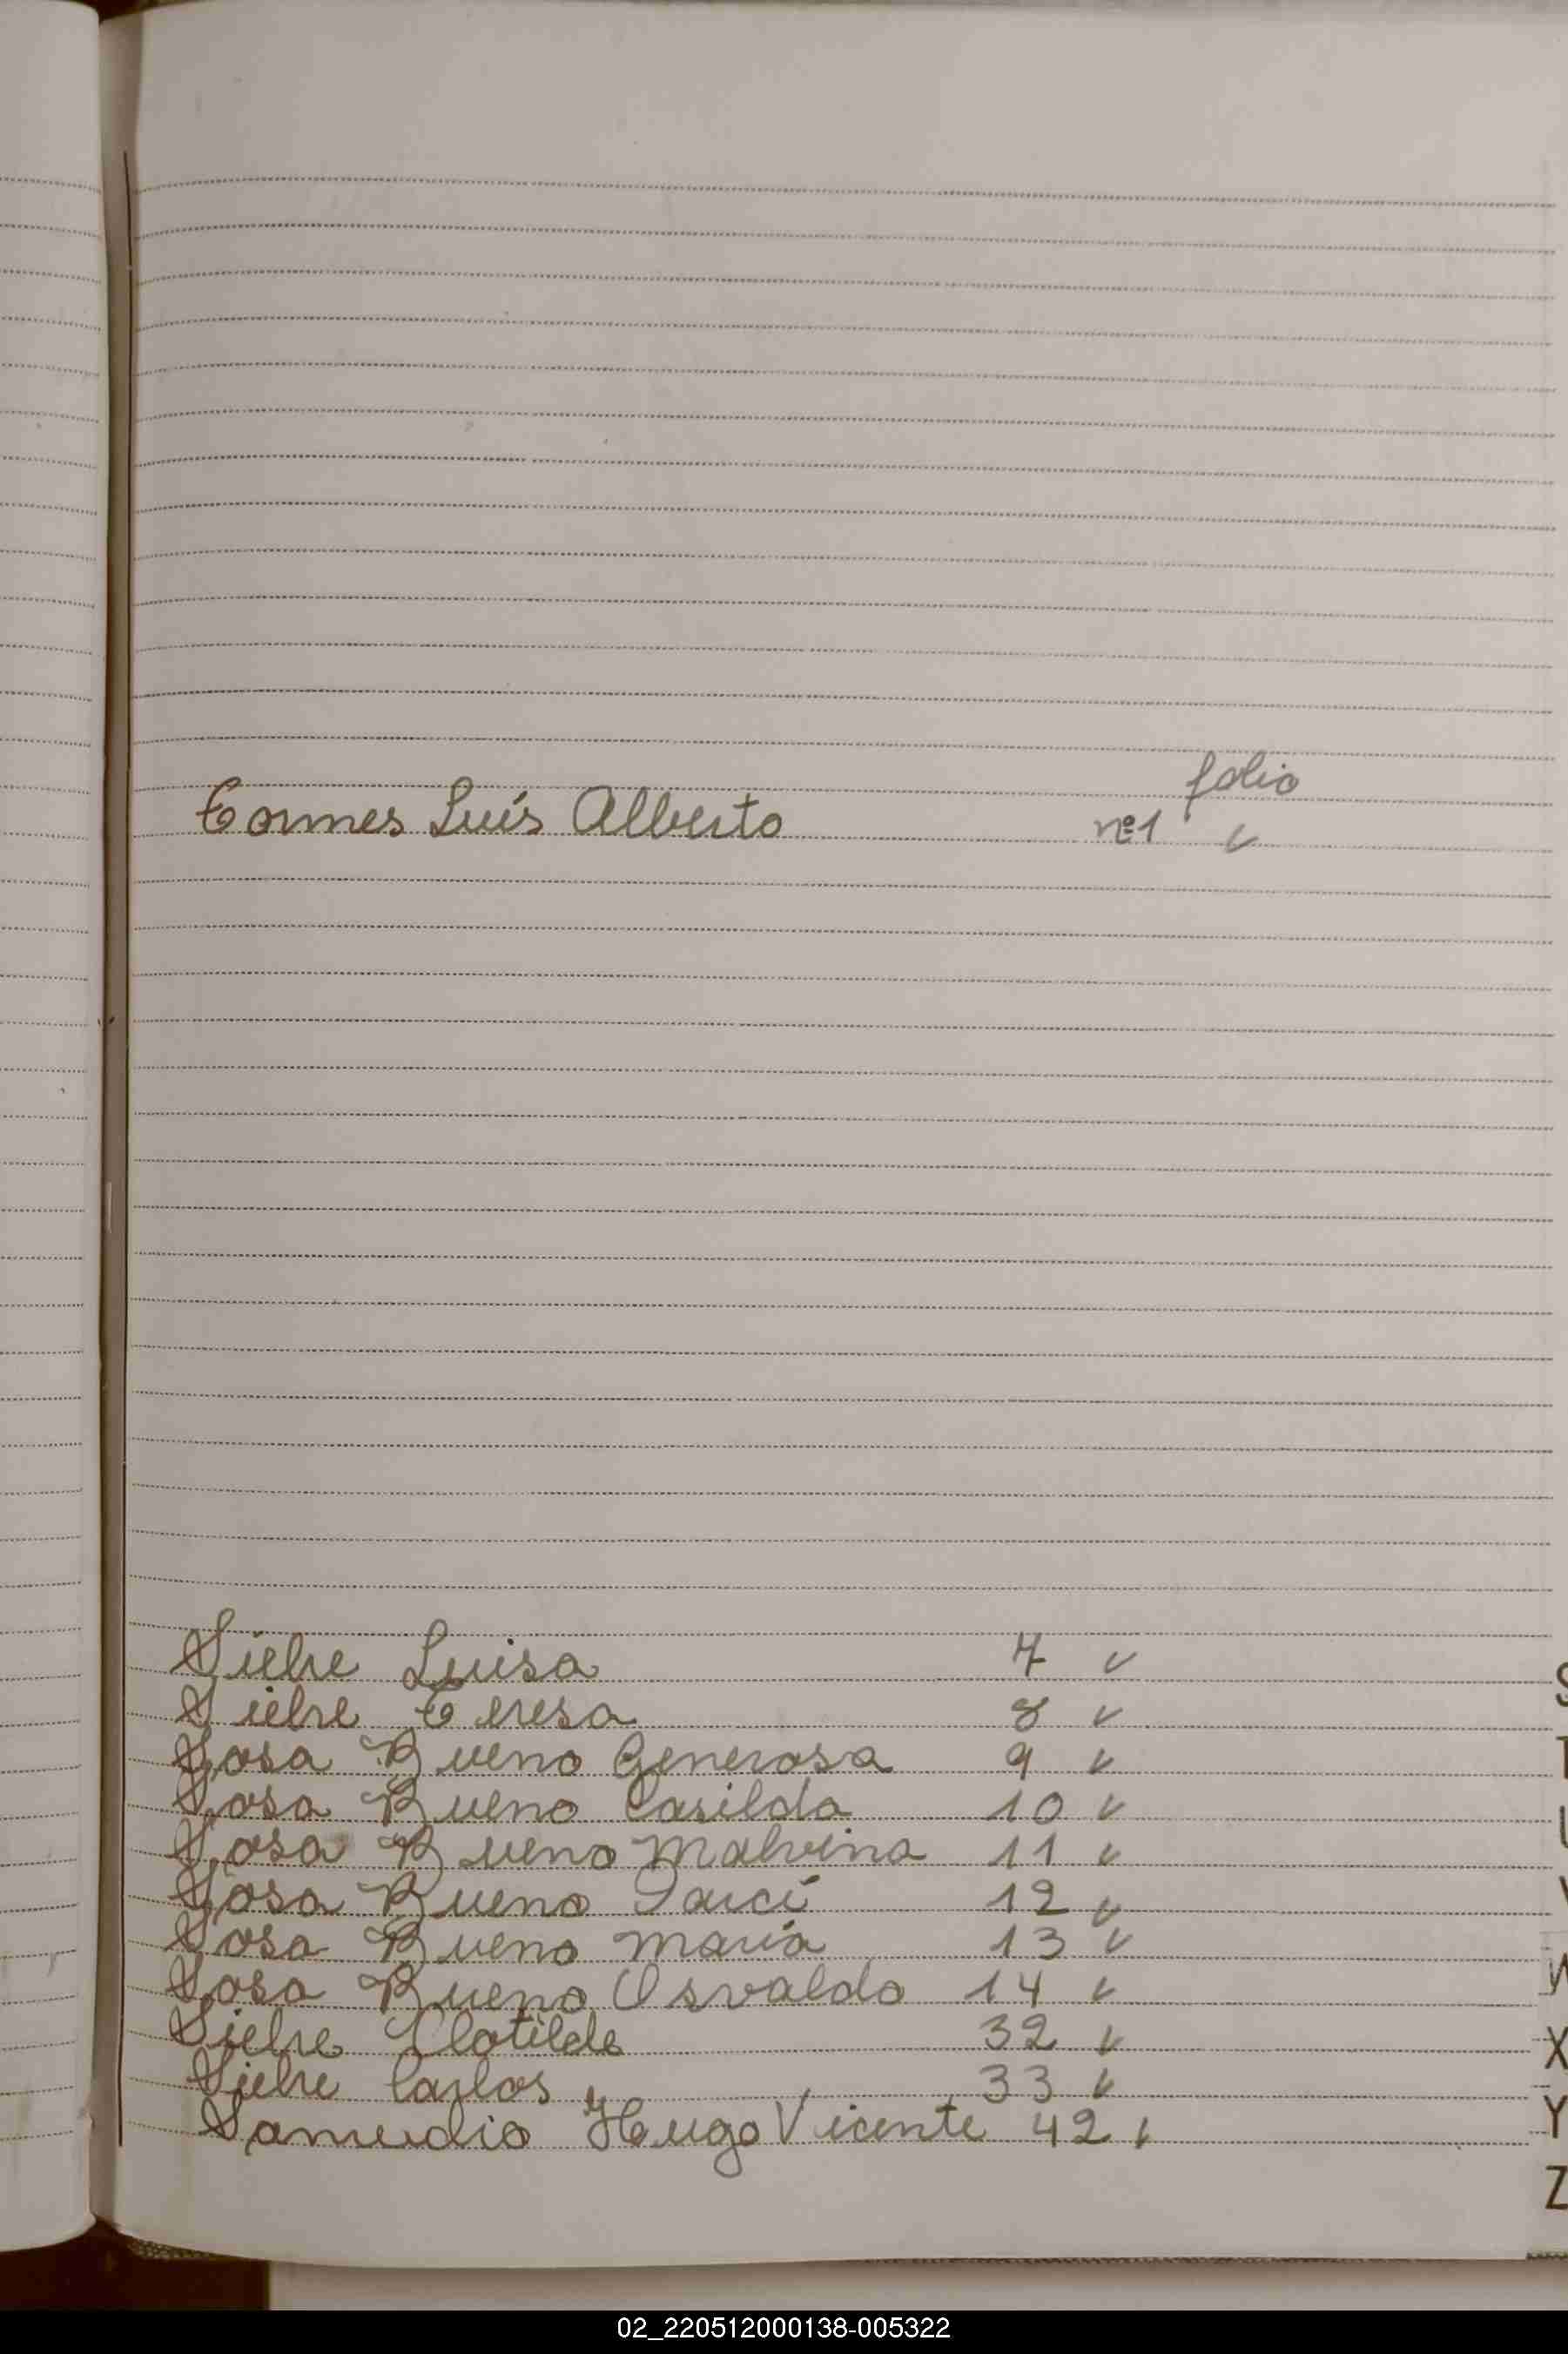 folio
Tormes Luís Alberto nº1 ✓
Siebre Luisa 7 ✓
Siebre Teresa 8 ✓
Sosa Bueno Generosa 9 ✓
Sosa Bueno Casilda 10 ✓
Sosa Bueno Malvina 11 ✓
Sosa Bueno 12 ✓
Sosa Bueno María 13 ✓
Sosa Bueno Osvaldo 14 ✓
Siebre Clotilde 32 ✓
Siebre Carlos 33 ✓
Samudio Hugo Vicente 42 ✓
S
T
U
V
W
X
Y
Z
02_220512000138-005322